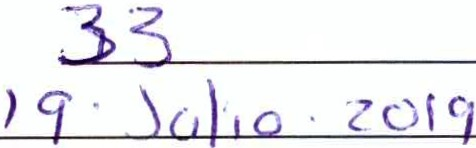 33
19. Julio. 2019